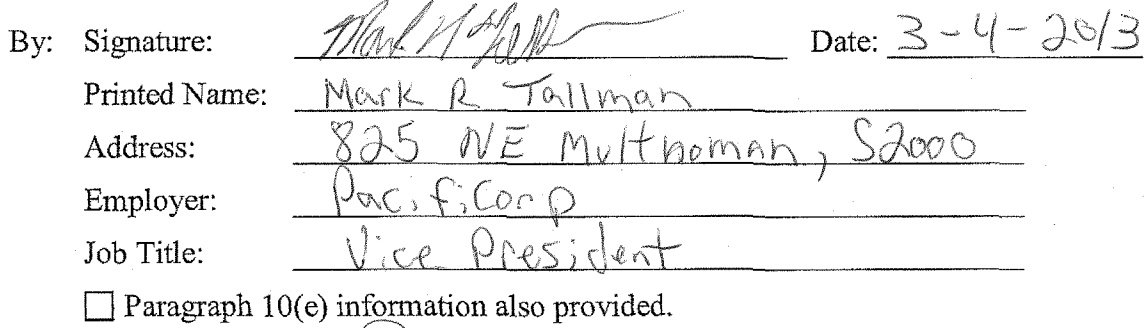 By: Signature: Date: 3-4-2013
Printed Name: Mark R Tallman
Address: 825 NE Multnomah, S2000
Employer: PacifiCorp
Job Title: Vice President
Paragraph 10(e) information also provided.